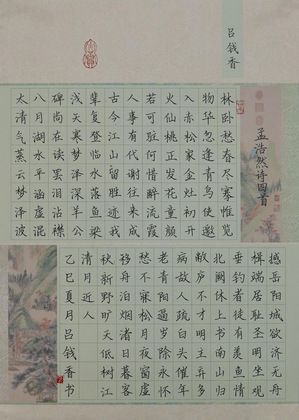 吕钱香
孟浩然诗四首
林卧愁春尽搴帷览
物华忽逢青鸟使邀
入赤松家金灶初开
火仙桃正发花童颜
若可驻何惜醉流霞
人事有代谢往来成
古今江山留胜迹我
辈复登临水落鱼梁
浅天寒梦泽深羊公
碑尚在读罢泪沾襟
八月湖水平涵虚混
太清气蒸云梦泽波
撼岳阳城欲济无舟
楫端居耻圣明坐观
垂钓者徒有羡鱼情
北阙休上书南山归
敝庐不才明主弃多
病故人疏白头催年
老青阳逼岁除永怀
愁不寐松月夜窗虚
移舟泊烟渚日暮客
愁新野旷天低树江
清月近人
乙巳夏月吕钱香书